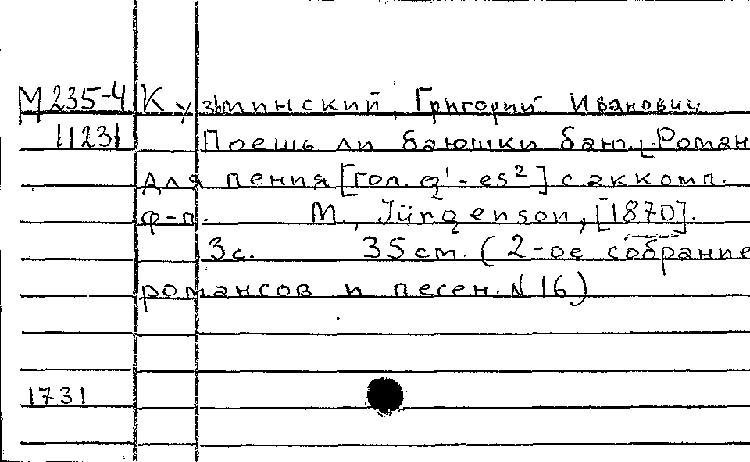 М 235-4 Кузьминский, Григорий Иванович
11231 Поешь ли баюшки баю. [Роман
для пения [гол. g¹-es²] с аккомп.
ф-п. М., Jürgenson, [1870].
3с. 35 см. (2-ое собрание
романсов и песен. N 16)
1731